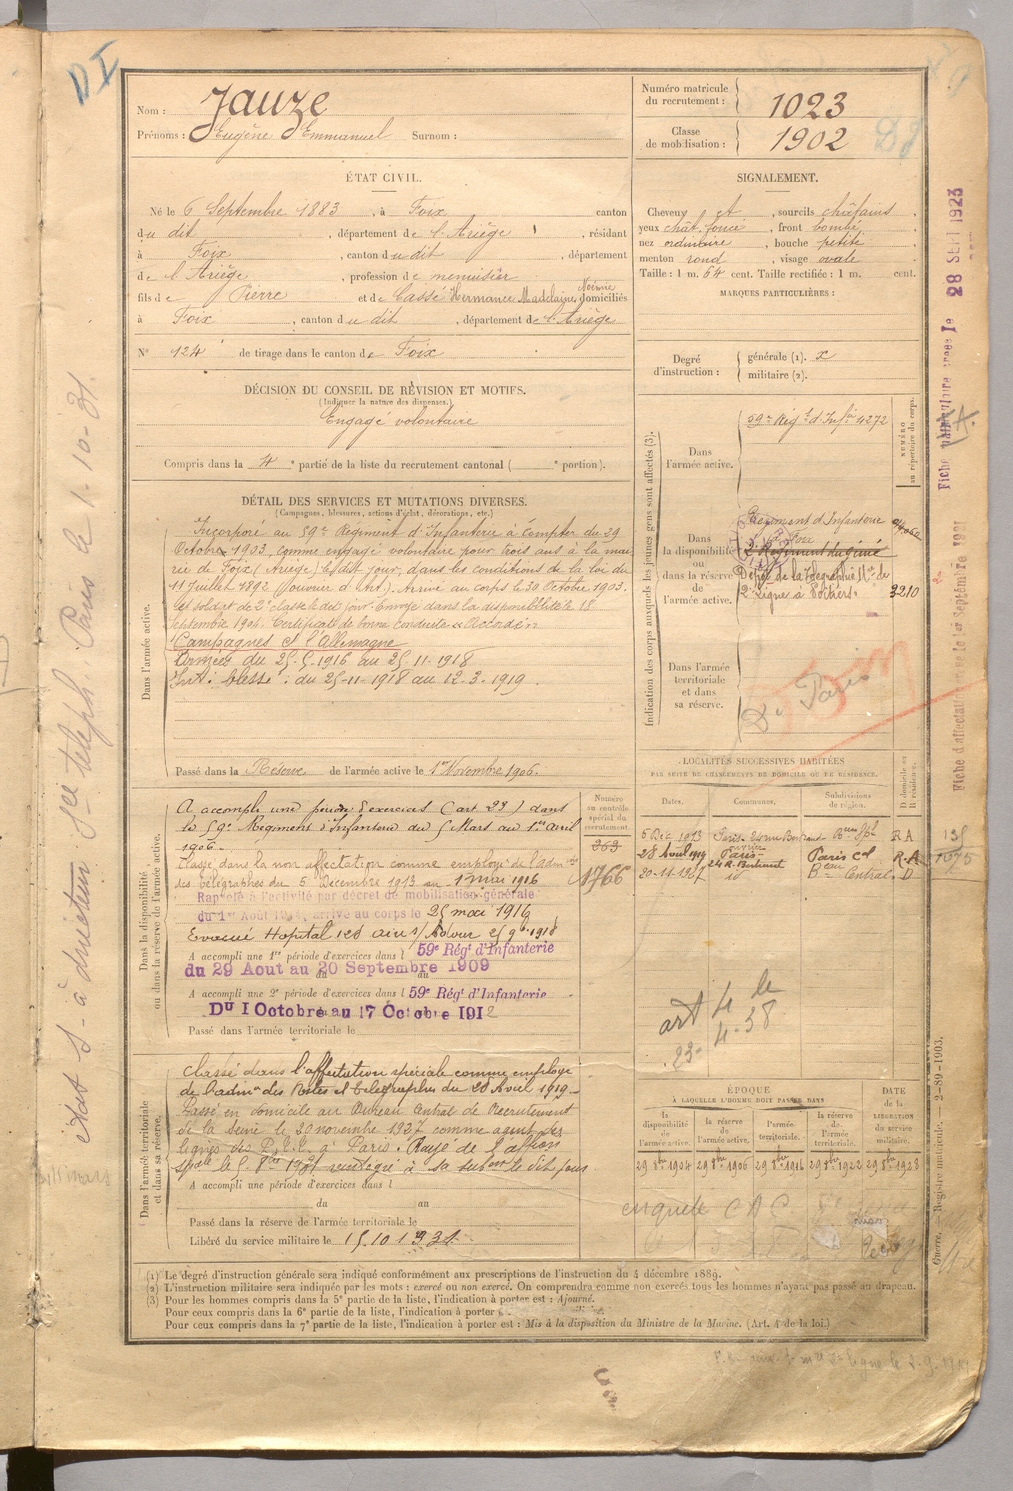 D I
Nom : Jauze
Prénoms : Eugène Emmanuel Surnom :
Numéro matricule
du recrutement : 1023
Classe
de mobilisation : 1902
ÉTAT CIVIL.
Né le 6 Septembre 1883, à Foix canton
du dit, département de l'Ariège, résidant
à Foix, canton du dit, département
de l'Ariège, profession de menuisier
fils de Pierre et de Cassé Hermance Madelaine Noémie domiciliés
à Foix, canton du dit, département de l'Ariège
N° 124 de tirage dans le canton de Foix
SIGNALEMENT.
Cheveux et, sourcils châtains,
yeux chât. foncé, front bombé,
nez ordinaire, bouche petite
menton rond, visage ovale
Taille : 1 m. 64 cent. Taille rectifiée : 1 m. cent.
MARQUES PARTICULIÈRES :
Degré
d'instruction :
générale (1). x
militaire (2).
DÉCISION DU CONSEIL DE RÉVISION ET MOTIFS.
(Indiquer la nature des dispenses.)
Engagé volontaire
Compris dans la 4e partie de la liste du recrutement cantonal ( e portion).
DÉTAIL DES SERVICES ET MUTATIONS DIVERSES.
(Campagnes, blessures, actions d'éclat, décorations, etc.)
Dans l'armée active.
Incorporé au 59e Régiment d'Infanterie à compter du 29
Octobre 1903, comme engagé volontaire pour trois ans à la mai
rie de Foix (Ariège) le dit jour, dans les conditions de la loi du
11 Juillet 1892 (ouvrier d'Art). Arrivé au corps le 30 Octobre 1903
et soldat de 2e classe le dit jour. Envoyé dans la disponibilité le 18
Septembre 1904. Certificat de bonne conduite "Accordé"
Campagnes Ct l'Allemagne
Armées du 25-5-1916 au 25-11-1918
Int : blessé : du 25-11-1918 au 12-3-1919
Passé dans la Réserve de l'armée active le 1er Novembre 1906.
Indication des corps auxquels les jeunes gens sont affectés (3).
NUMÉRO
au répertoire du corps.
Dans
l'armée active.
59e Régt d'Infie 4272
Dans
la disponibilité
ou
dans la réserve
de
l'armée active.
Régiment d'Infanterie
de Foix
2e Régiment du génie
Dépôt de la Télégraphie Mre de
2e ligne à Poitiers.
3210
Dans l'armée
territoriale
et dans
sa réserve.
Dn Paris
Dans la disponibilité
ou dans la réserve de l'armée active.
A accompli une période d'exercices (art. 23) dans
le 59e Régiment d'Infanterie du 5 Mars au 1er avril
1906.
Classé dans la non affectation comme employé de l'admon
des télégraphes du 5 Décembre 1913 au 1 mai 1916
Rappelé à l'activité par décret de mobilisation générale
du 1er Août 1914, arrivé au corps le 25 mai 1916
Evacué Hopital 108 aire s/Adour 25 9bre 1918
A accompli une 1re période d'exercices dans l 59e Régt d'Infanterie
du 29 Aout au 20 Septembre 1909
A accompli une 2e période d'exercices dans l 59e Régt d'Infanterie
Du 1 Octobre au 17 Octobre 1912
Passé dans l'armée territoriale le
Numéro
au contrôle
spécial du
recrutement.
263
1766
LOCALITÉS SUCCESSIVES HABITÉES
PAR SUITE DE CHANGEMENTS DE DOMICILE OU DE RÉSIDENCE.
Dates. Communes. Subdivisions
de région. D domicile ou
R résidence.
5 Déc. 1913 Paris. Bau Spl R A
28 Août 1919 Paris Paris Cal R.A
24 R. Bertinot
20-11-1927 id Bau Central. D
art 4 le
23-4-38
Dans l'armée territoriale
et dans sa réserve.
Classé dans l'affectation spéciale comme employé
de l'admon des Postes et Télégraphes du 28 Avril 1919
Passé en domicile au Bureau Central de Recrutement
de la Seine le 20 novembre 1927 comme agent des
lignes des P.T.T. à Paris. Rayé de l'affon
spale le 1er 8bre 1931 réintégré à sa subon le dit jour
A accompli une période d'exercices dans l
du au
Passé dans la réserve de l'armée territoriale le
Libéré du service militaire le 15.10 1931.
ÉPOQUE
À LAQUELLE L'HOMME DOIT PASSER DANS
la
disponibilité
de
l'armée active.
la réserve
de
l'armée active.
l'armée
territoriale.
la réserve
de
l'armée
territoriale.
DATE
de la
LIBÉRATION
du
service
militaire.
29 8bre 1904 29 8bre 1906 29 8bre 1916 29 8bre 1922 29 8bre 1928
enquete C A C
(1) Le degré d'instruction générale sera indiqué conformément aux prescriptions de l'instruction du 4 décembre 1889.
(2) L'instruction militaire sera indiquée par les mots : exercé ou non exercé. On comprendra comme non exercés tous les hommes n'ayant pas passé au drapeau.
(3) Pour les hommes compris dans la 5e partie de la liste, l'indication à porter est : Ajourné.
Pour ceux compris dans la 6e partie de la liste, l'indication à porter
Pour ceux compris dans la 7e partie de la liste, l'indication à porter est : Mis à la disposition du Ministre de la Marine. (Art. 4 de la loi.)
Guerre. — Registre matricule. — 2-89-1903.
28 SEPT 1923
Fiche d'affectation le 1er Septembre 1921